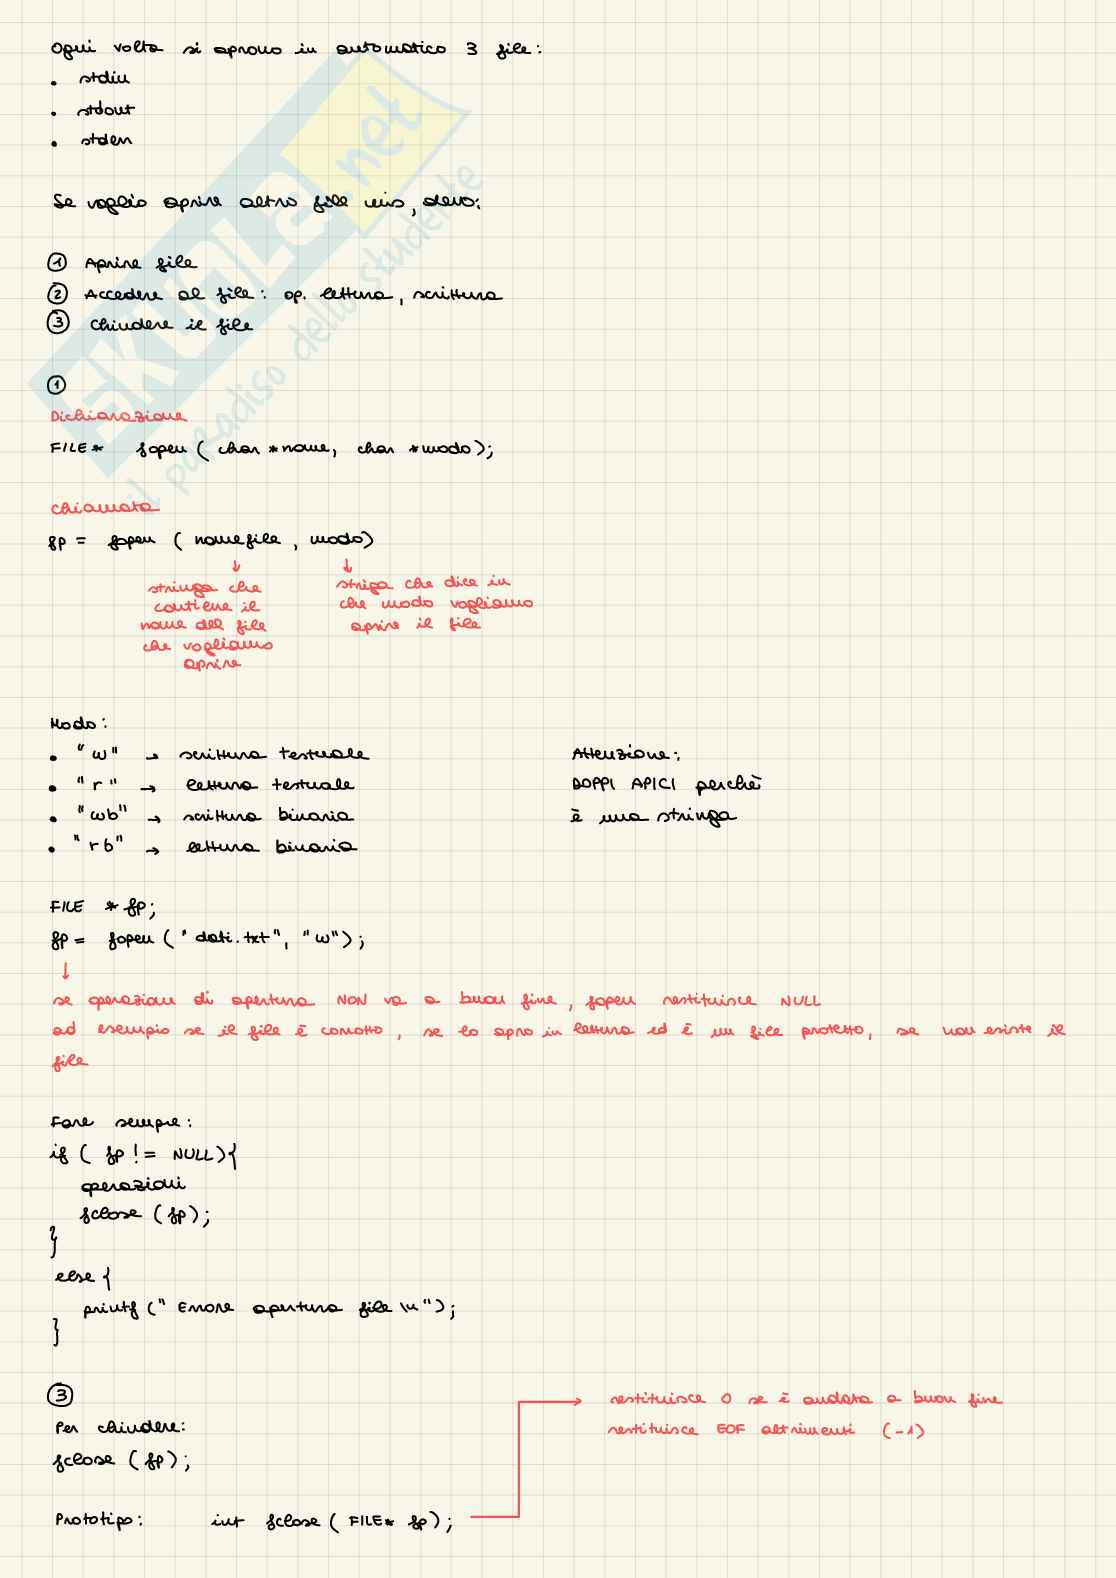 Ogni volta si aprono in automatico 3 file:
• stdin
• stdout
• stderr
Se voglio aprire altro file mio, devo:
① Aprire file
② Accedere al file: op. lettura, scrittura
③ Chiudere il file
①
Dichiarazione
FILE* fopen ( char *nome, char *modo);
Chiamata
fp = fopen ( nomefile , modo)
↓ ↓
stringa che
contiene il
nome del file
che vogliamo
aprire
striga che dice in
che modo vogliamo
aprire il file
Modo:
• "w" → scrittura testuale
• "r" → lettura testuale
• "wb" → scrittura binaria
• "rb" → lettura binaria
Attenzione:
DOPPI APICI perchè
è una stringa
FILE *fp;
fp = fopen ("dati.txt", "w");
↓
se operazione di apertura NON va a buon fine, fopen restituisce NULL
ad esempio se il file è corrotto, se lo apro in lettura ed è un file protetto, se non esiste il
file
Fare sempre:
if ( fp != NULL){
operazioni
fclose (fp);
}
else {
printf (" Errore apertura file \n");
}
③
Per chiudere:
fclose (fp);
restituisce 0 se è andata a buon fine
restituisce EOF altrimenti (-1)
Prototipo: int fclose ( FILE* fp);
SKUOLA.net
il paradiso dello studente